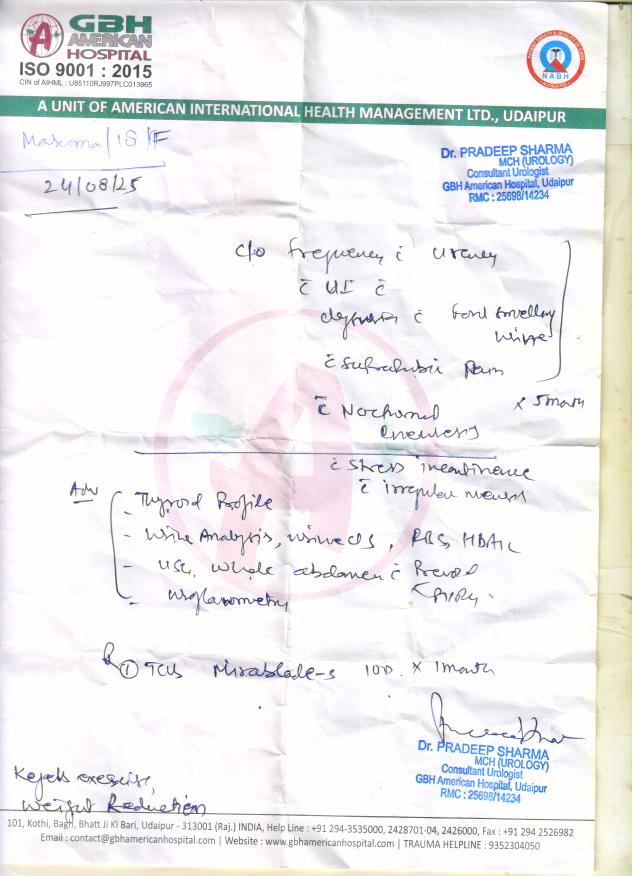 GBH
AMERICAN
HOSPITAL
ISO 9001 : 2015
CIN of AIHML : U85110RJ997PLC013965
NABH
A UNIT OF AMERICAN INTERNATIONAL HEALTH MANAGEMENT LTD., UDAIPUR
Masuma/18/F
24/08/25
Dr. PRADEEP SHARMA
MCH (UROLOGY)
Consultant Urologist
GBH American Hospital, Udaipur
RMC : 25698/14234
c/o frequency c̄ urgency
c̄ UI c̄
dysuria c̄ foul smelling
urine
c̄ Suprapubic Pain
x 5 month
c̄ Nocturnal
enuresis
c̄ stress incontinence
c̄ irregular menses
Adv
- Thyroid Profile
- Urine Analysis, urine c/s, RBS HBA1C
- USG whole abdomen c̄ Prevoid
PVRU
- uroflowmetry
Rx ① Tab Mirablade-S 10D x 1 month
Dr. PRADEEP SHARMA
MCH (UROLOGY)
Consultant Urologist
GBH American Hospital, Udaipur
RMC : 25698/14234
Kegels exercise,
Weight Reduction
101, Kothi, Bagh, Bhatt Ji Ki Bari, Udaipur - 313001 (Raj.) INDIA, Help Line : +91 294-3535000, 2428701-04, 2426000, Fax : +91 294 2526982
Email : contact@gbhamericanhospital.com | Website : www.gbhamericanhospital.com | TRAUMA HELPLINE : 9352304050